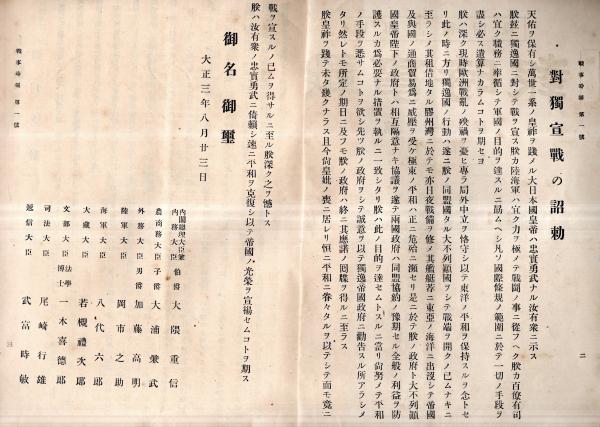 戰事時報 第一號
二
對獨宣戰の詔勅
天佑ヲ保有シ萬世一系ノ皇祚ヲ踐メル大日本國皇帝ハ忠實勇武ナル汝有衆ニ示ス
朕茲ニ獨逸國ニ對シテ戰ヲ宣ス朕カ陸海軍ハ宜ク力ヲ極メテ戰鬪ノ事ニ從フヘク朕カ百僚有司
ハ宜ク職務ニ率循シテ軍國ノ目的ヲ達スルニ勗ムヘシ凡ソ國際條規ノ範圍ニ於テ一切ノ手段ヲ
盡シ必ス遺算ナカラムコトヲ期セヨ
朕ハ深ク現時歐洲戰亂ノ殃禍ヲ憂ヒ專ラ局外中立ヲ恪守シ以テ東洋ノ平和ヲ保持スルヲ念トセ
リ此ノ時ニ方リ獨逸國ノ行動ハ遂ニ朕ノ同盟國タル大不列顛國ヲシテ戰端ヲ開クノ已ムナキニ
至ラシメ其租借地タル膠州灣ニ於テモ亦日夜戰備ヲ修メ其艦艇荐ニ東亞ノ海洋ニ出沒シテ帝國
及與國ノ通商貿易爲ニ威壓ヲ受ケ極東ノ平和ハ正ニ危殆ニ瀕セリ是ニ於テ朕ノ政府ト大不列顛
國皇帝陛下ノ政府トハ相互隔意ナキ協議ヲ遂ケ兩國政府ハ同盟協約ノ豫期セル全般ノ利益ヲ防
護スルカ爲必要ナル措置ヲ執ルニ一致シタリ朕ハ此ノ目的ヲ達セムトスルニ當リ尙努メテ平和
ノ手段ヲ悉サムコトヲ欲シ先ツ朕ノ政府ヲシテ誠意ヲ以テ獨逸帝國政府ニ勸告スル所アラシメ
タリ然レトモ所定ノ期日ニ及フモ朕ノ政府ハ終ニ其應諾ノ囘牒ヲ得ルニ至ラス
朕皇祚ヲ踐テ未タ幾クナラス且今尙皇妣ノ喪ニ居レリ恒ニ平和ニ眷々タルヲ以テシテ而モ竟ニ
戰ヲ宣スルノ已ムヲ得サルニ至ル朕深ク之ヲ憾トス
朕ハ汝有衆ノ忠實勇武ニ倚賴シ速ニ平和ヲ克復シ以テ帝國ノ光榮ヲ宣揚セムコトヲ期ス
御名御璽
大正三年八月廿三日
內閣總理大臣兼
內務大臣 伯爵 大隈重信
農商務大臣 子爵 大浦兼武
外務大臣 男爵 加藤高明
陸軍大臣 岡市之助
海軍大臣 八代六郞
大藏大臣 若槻禮次郞
文部大臣 法學博士 一木喜德郞
司法大臣 尾崎行雄
遞信大臣 武富時敏
戰事時報 第一號